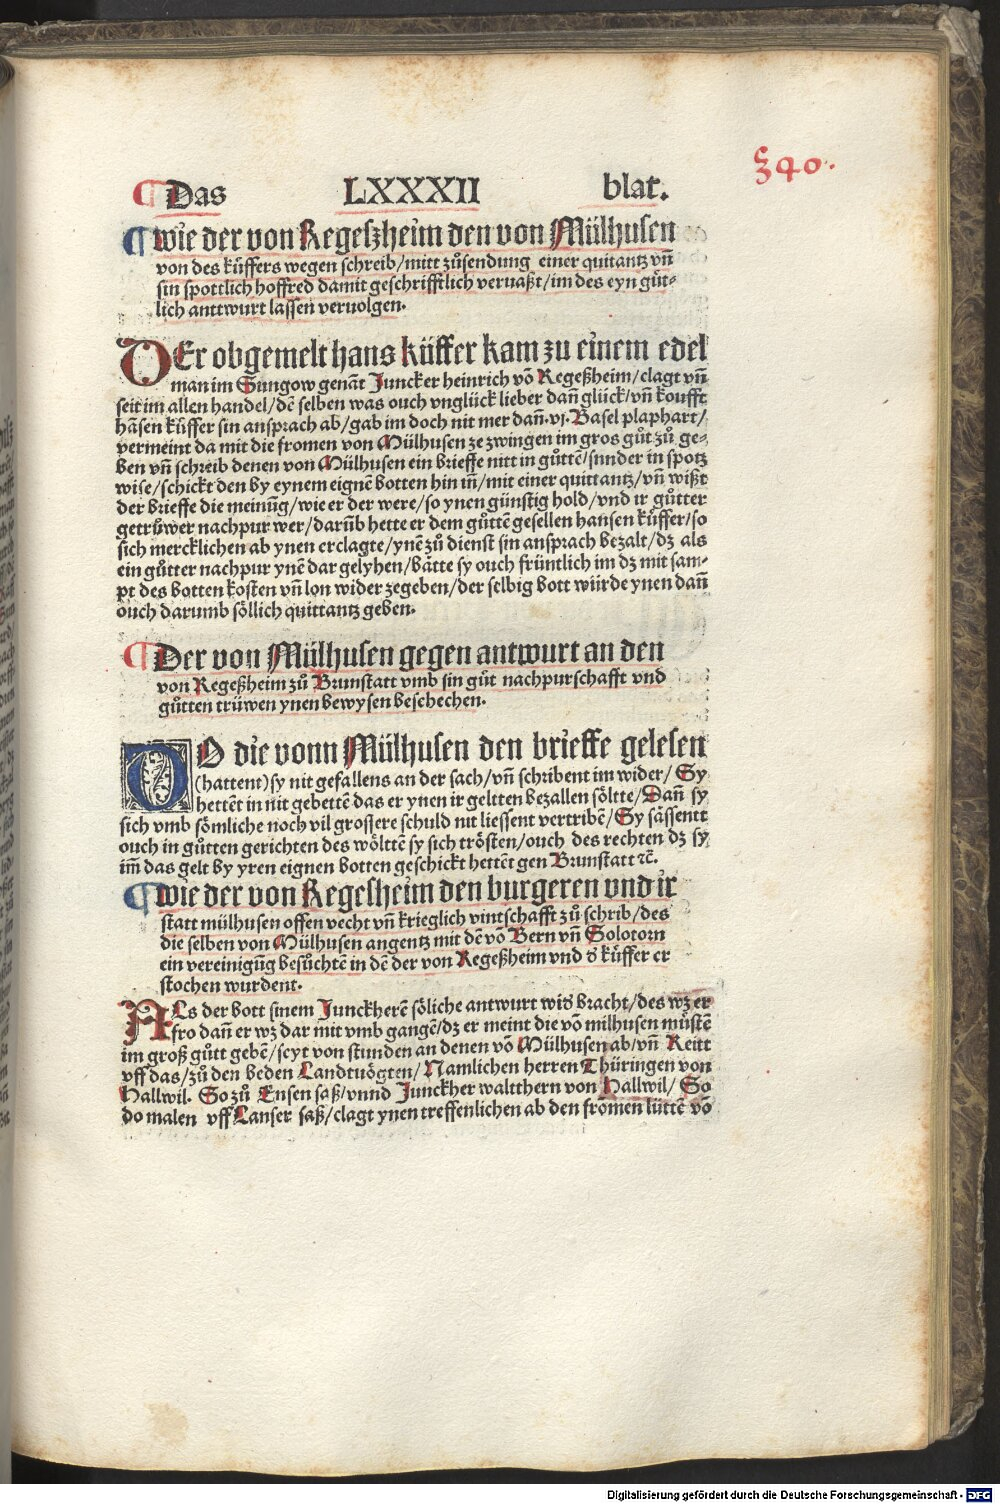 ¶ Das LXXXII blat.
340.
¶ Wie der von Regeszheim den von Mülhusen
von des küffers wegen schreib/mitt zůsendung einer quitantz vñ
sin spottlich hoffred damit geschrifftlich veruaßt/im des eyn gůt-
lich anttwurt lassen veruolgen.
DEr obgemelt hans küffer kam zu einem edel
man im Sungow genãt Juncker heinrich võ Regeßheim/clagt vñ
seit im allen handel/dẽ selben was ouch vnglück lieber dañ glück/vñ koufft
hãsen küffer sin ansprach ab/gab im doch nit mer dañ.vj.Basel plaphart/
vermeint da mit die fromen von Mülhusen ze zwingen im gros gůt zů ge-
ben vñ schreib denen von Mülhusen ein brieffe nitt in gůttẽ/sunder in spotz
wise/schickt den by eynem eignẽ botten hin iñ/mit einer quittantz/vñ wißt
der brieffe die meinũg/wie er der were/so ynen günstig hold/vnd ir gůtter
getrüwer nachpur wer/darũb hette er dem gůttẽ gesellen hansen küffer/so
sich mercklichen ab ynen erclagte/ynẽ zů dienst sin ansprach bezalt/dz als
ein gůtter nachpur ynẽ dar gelyhen/bätte sy ouch früntlich im dz mit sam-
pt des botten kosten vñ lon wider zegeben/der selbig bott würde ynen dañ
ouch darumb söllich quittantz geben.
¶ Der von Mülhusen gegen antwurt an den
von Regeßheim zů Brunstatt vmb sin gůt nachpurschafft vnd
gůtten trüwen ynen bewysen beschechen.
DO die vonn Mülhusen den brieffe gelesen
(hattent)sy nit gefallens an der sach/vñ schribent im wider/Sy
hettẽt in nit gebettẽ das er ynen ir geltten bezallen söltte/Dañ sy
sich vmb sömliche noch vil grossere schuld nit liessent vertribẽ/Sy sässentt
ouch in gůtten gerichten des wölttẽ sy sich trösten/ouch des rechten dz sy
im̃ das gelt by yren eignen botten geschickt hettẽt gen Brunstatt ꝛc̃.
¶ Wie der von Regesheim den burgeren vnd ir
statt mülhusen offen vecht vñ krieglich vintschafft zů schrib/des
die selben von Mülhusen angentz mit dẽ võ Bern vñ Solotorn
ein vereinigũg besůchtẽ in dẽ der von Regeßheim vnd ð küffer er
stochen wurdent.
ALs der bott sinem Junckherẽ söliche antwurt wið bracht/des wz er
fro dañ er wz dar mit vmb gangẽ/dz er meint die võ milhusen můstẽ
im groß gůtt gebẽ/seyt von stunden an denen võ Mülhusen ab/vñ Reitt
vff das/zů den beden Landtuögten/Namlichen herren Thüringen von
Hallwil. So zů Ensen saß/vnnd Junckher waltthern von Hallwil/So
do malen vff Lanser saß/clagt ynen treffenlichen ab den fromen lüttẽ võ
Digitalisierung gefördert durch die Deutsche Forschungsgemeinschaft - DFG